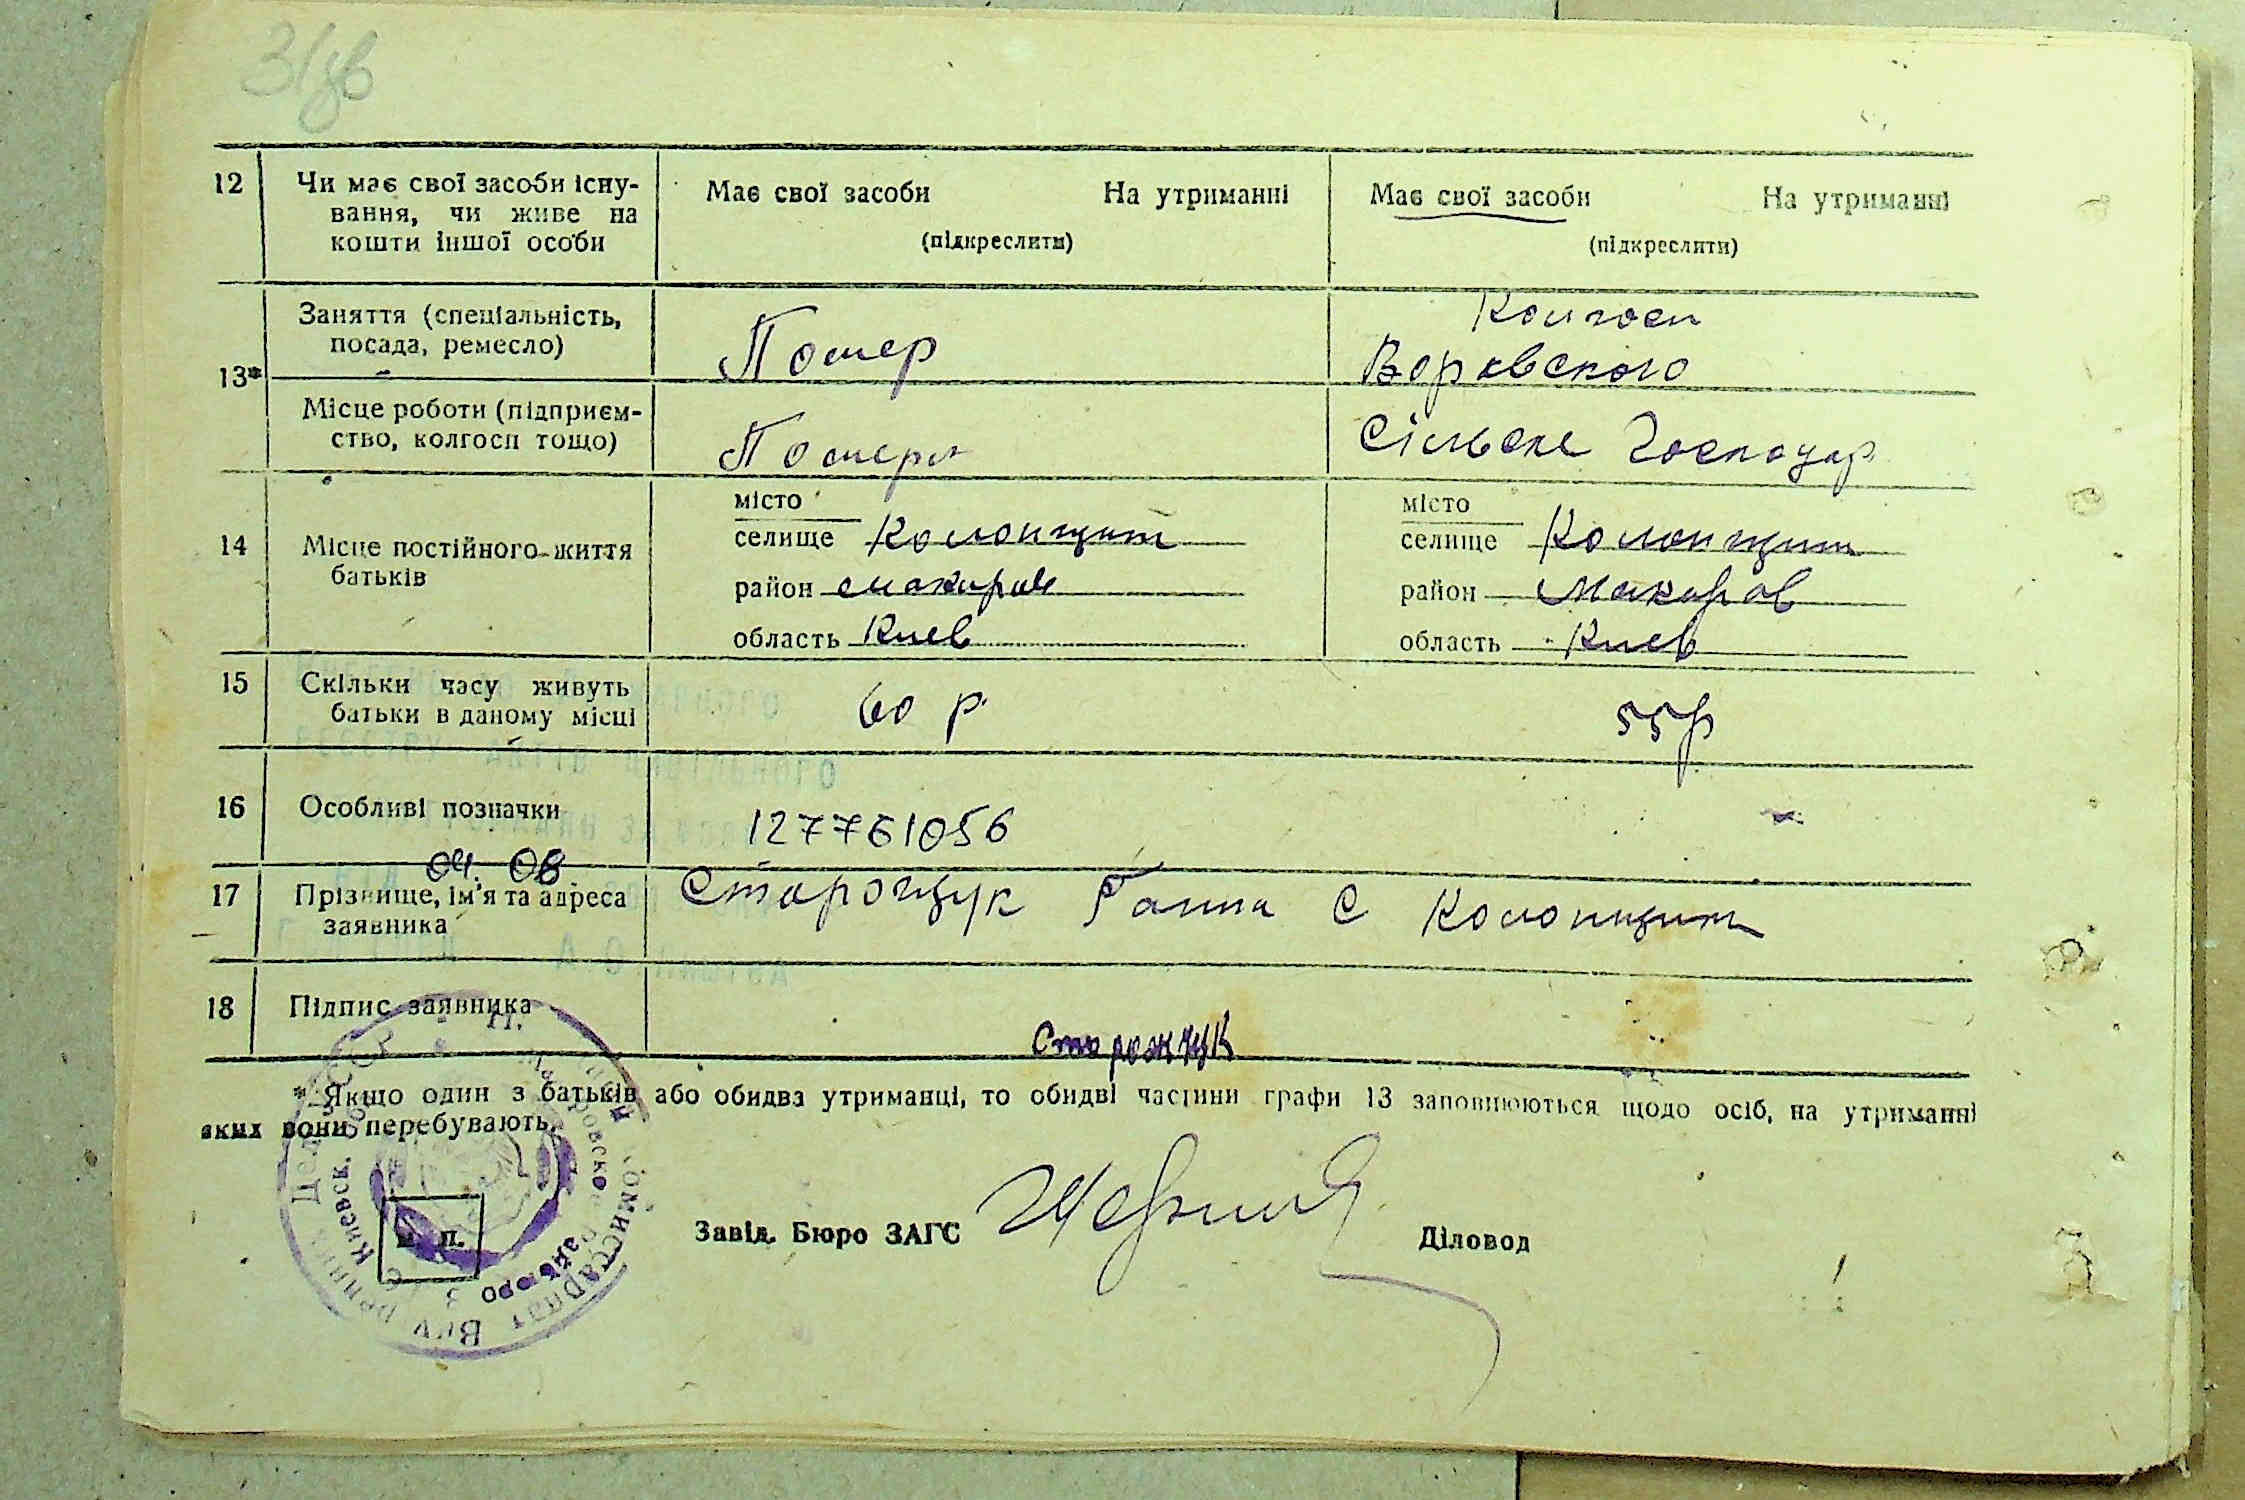 31зв
12 Чи має свої засоби існу-
вання, чи живе на
кошти іншої особи
Має свої засоби На утриманні
(підкреслити)
Має свої засоби На утриманні
(підкреслити)
13*
Заняття (спеціальність,
посада, ремесло)
Помер
Колгосп
Воровского
Місце роботи (підприєм-
ство, колгосп тощо)
Помер
Сільске Господар
14 Місце постійного життя
батьків
місто
селище Колонщина
район Макаров
область Киев
місто
селище Колонщина
район Макаров
область Киев
15 Скільки часу живуть
батьки в даному місці
60 р
55р
16 Особливі позначки
127761056
04. 08
17 Прізвище, ім'я та адреса
заявника
Старощук Ганна С Колонщина
18 Підпис заявника
Сторожук
* Якщо один з батьків або обидва утриманці, то обидві частини графи 13 заповнюються щодо осіб, на утриманні
яких вони перебувають.
м. п.
Завід. Бюро ЗАГС
Діловод